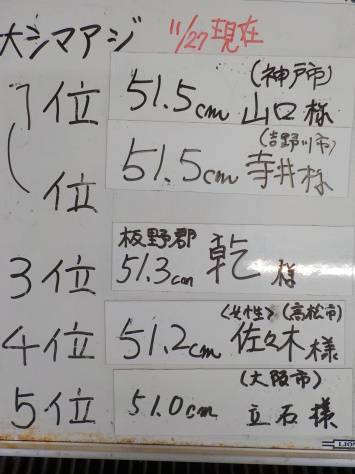 大シマアジ 11/27現在
1位 51.5cm (神戸市) 山口様
位 51.5cm (吉野川市) 寺井様
3位 板野郡 51.3cm 乾 様
4位 51.2cm <女性> (高松市) 佐々木様
5位 51.0cm (大阪市) 立石様
LION